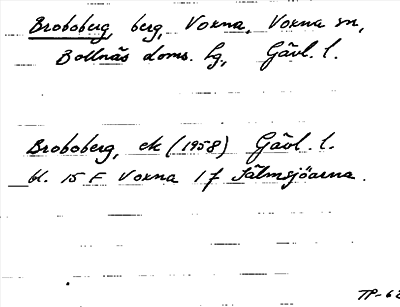 Broboberg, berg, Voxna, Voxna sn,
Bollnäs doms. hg., Gävl. l.
Broboberg, ek (1958) Gävl. l.
bl. 15 F Voxna 1 f Sälmsjöarna.
TP-62